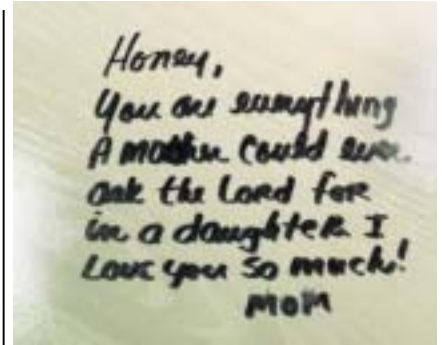 Honey,
You are everything
A mother could ever
ask the Lord for
in a daughter I
Love you so much!
MOM